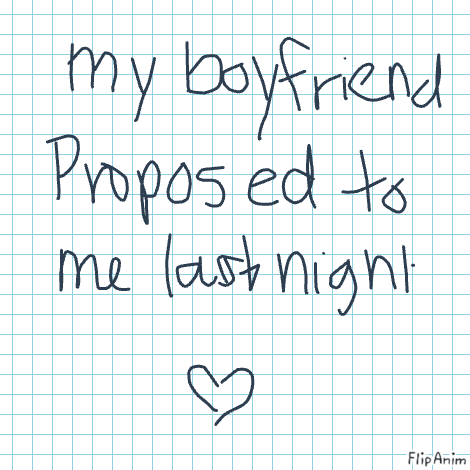 my boyfriend
Proposed to
me last night
♡
FlipAnim